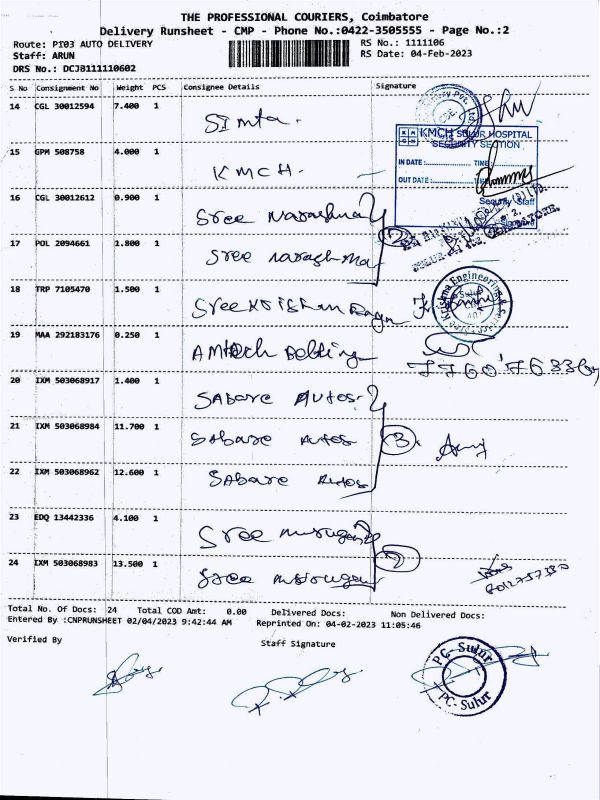 THE PROFESSIONAL COURIERS, Coimbatore
Delivery Runsheet - CMP - Phone No.:0422-3505555 - Page No.:2
Route: PI03 AUTO DELIVERY
RS No.: 1111106
Staff: ARUN
RS Date: 04-Feb-2023
DRS No.: DCJB111110602
S No Consignment No Weight PCS Consignee Details Signature
14 CGL 30012594 7.400 1 Simta.
KMCH SULUR HOSPITAL
SECURITY SECTION
15 GPM 508758 4.000 1 KMCH.
IN DATE: TIME:
OUT DATE:
Security Staff
16 CGL 30012612 0.900 1 Sree
17 POL 2094661 1.800 1 Sree
18 TRP 7105470 1.500 1 Sree
Sree Krishna Engineering
Sulur
19 MAA 292183176 0.250 1 Belting
20 IXM 503068917 1.400 1 Sabare Autos
21 IXM 503068984 11.700 1 Sabare Autos
3.
22 IXM 503068962 12.600 1 Sabare Autos
23 EDQ 13442336 4.100 1 Sree
24 IXM 503068983 13.500 1 Sree
Total No. Of Docs: 24 Total COD Amt: 0.00 Delivered Docs: Non Delivered Docs:
Entered By :CNPRUNSHEET 02/04/2023 9:42:44 AM Reprinted On: 04-02-2023 11:05:46
Verified By
Staff Signature
PC-Sulur
PC-Sulur